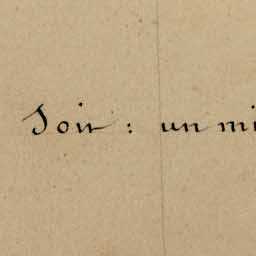 Soit : un mi